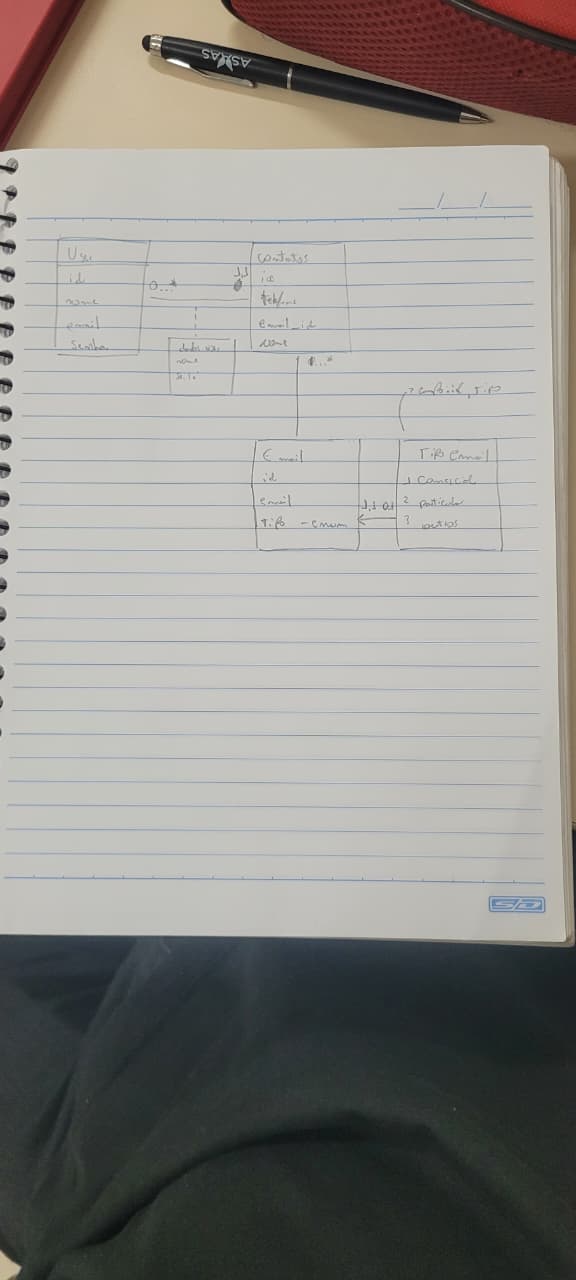 ASAAS
User
id
nome
email
Senha
0...*
1,1
contatos
id
telefone
email_id
nome
dados user
nome
1...*
Email
id
email
Tipo - enum
1,1 0,1
, Tipo
Tipo Email
1 Comercial
2 particular
3 outros
S/D